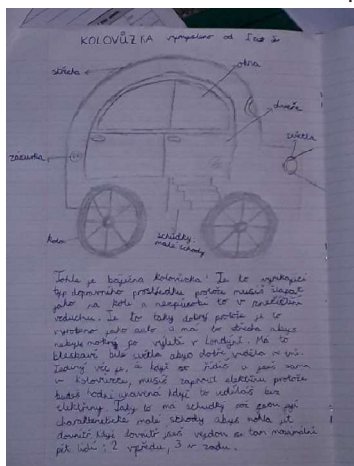 KOLOVŮZKA vymyšleno od
střecha
okna
dveře
světla
zásuvka
kola
schůdky
malé schody
Tohle je báječná kolovůzka! Je to vynikající
typ dopravního prostředku protože musíš šlapat
jako na kole a nezpůsobí to v znečištění
vzduchu. Je to taky dobrý protože je to
vyrobeno jako auto a má to střechu abys
nebyla mokrá po výletě v Londýně. Má to
bleskavě bílé světla abys dobře viděla
věc je, a když seš řidič a jseš sama
v kolovůzce, musíš zapnout elektřinu protože
budeš hodně unavená když to uděláš bez
elektřiny. Taky to má schůdky
charakteristické malé schody abys mohla jít
dovnitř když dovnitř
pět lidí: 2 vpředu, 3 v zadu.